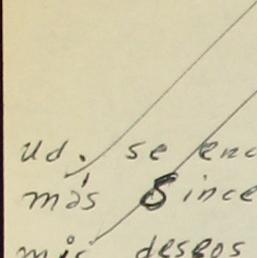 Ud. se enc
más Since
mis deseos